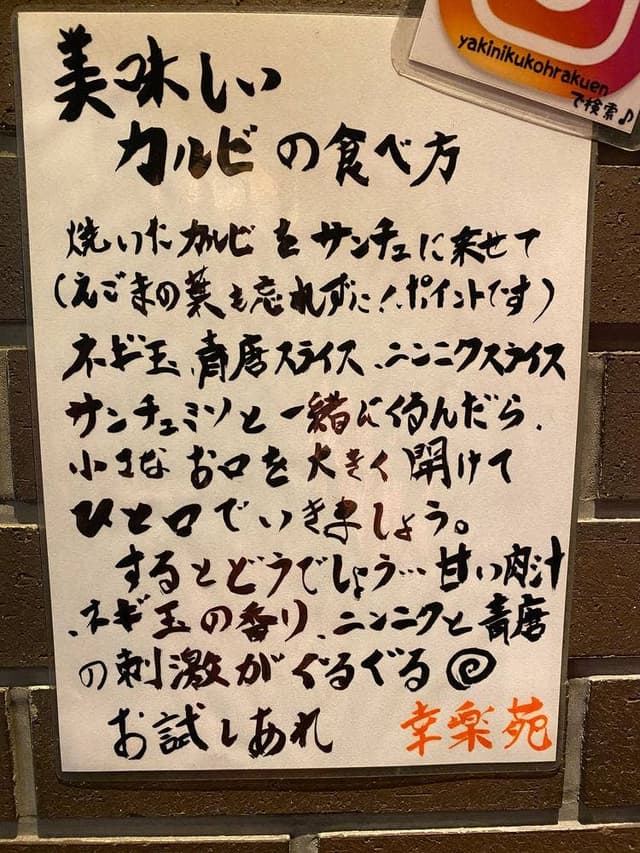 yakinikukohrakuen
で検索♪
美味しい
カルビの食べ方
焼いたカルビをサンチュに乗せて
(えごまの葉も忘れずに!ポイントです)
ネギ玉、青唐スライス、ニンニクスライス
サンチュミソと一緒にくるんだら、
小さなお口を大きく開けて
ひと口でいきましょう。
するとどうでしょう…甘い肉汁
、ネギ玉の香り、ニンニクと青唐
の刺激がぐるぐる
お試しあれ
幸楽苑